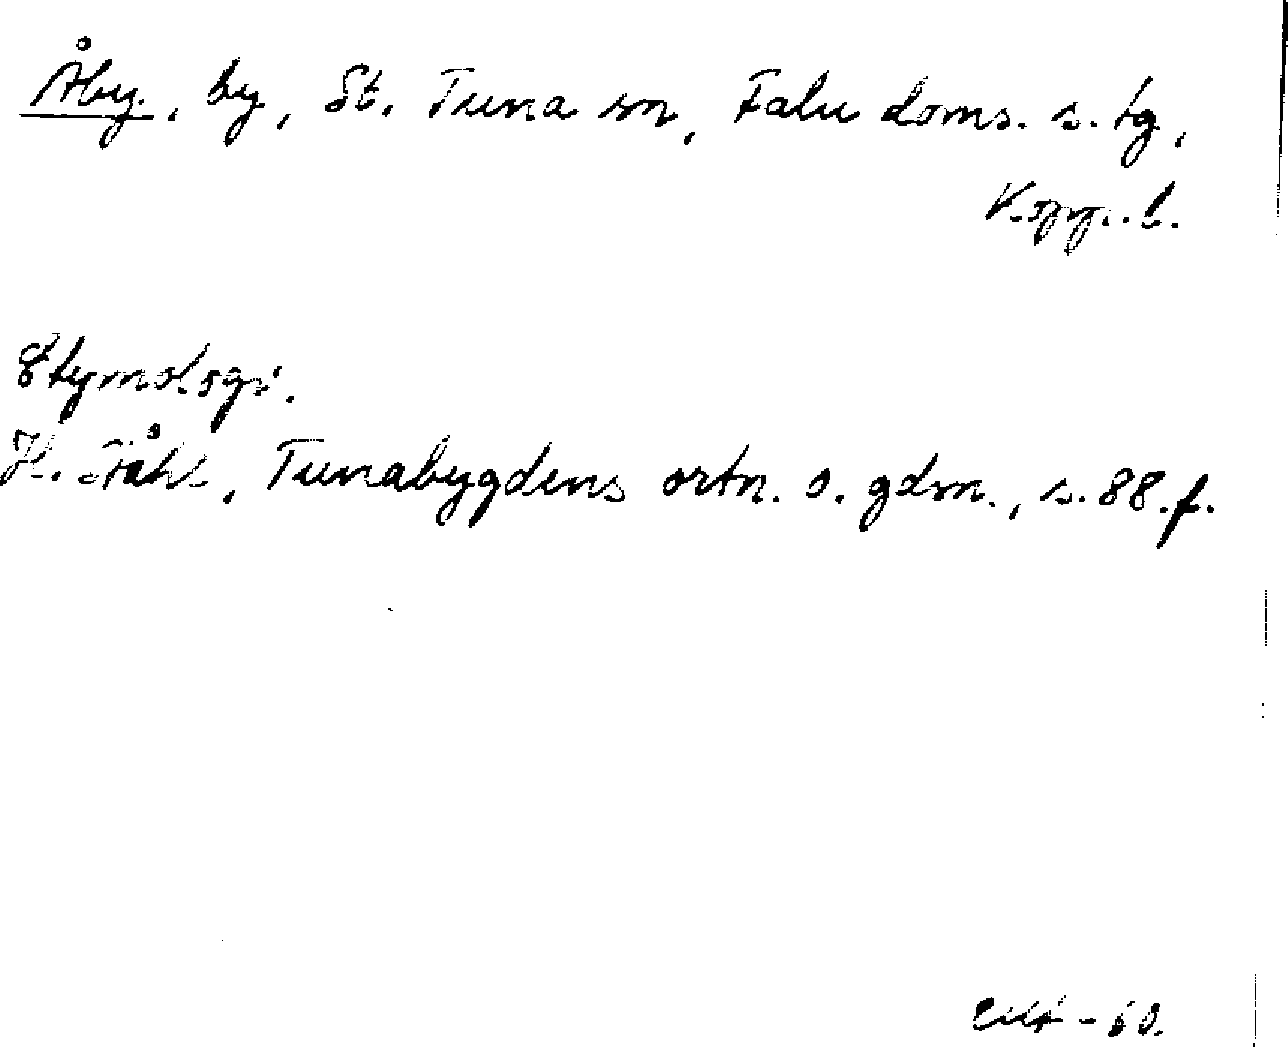 Åby, by, St. Tuna sn, Falu doms. s. tg,
Kopp. l.
Etymologi.
H. Ståhl, Tunabygdens ortn. o. gdm., s. 88.f.
-60.